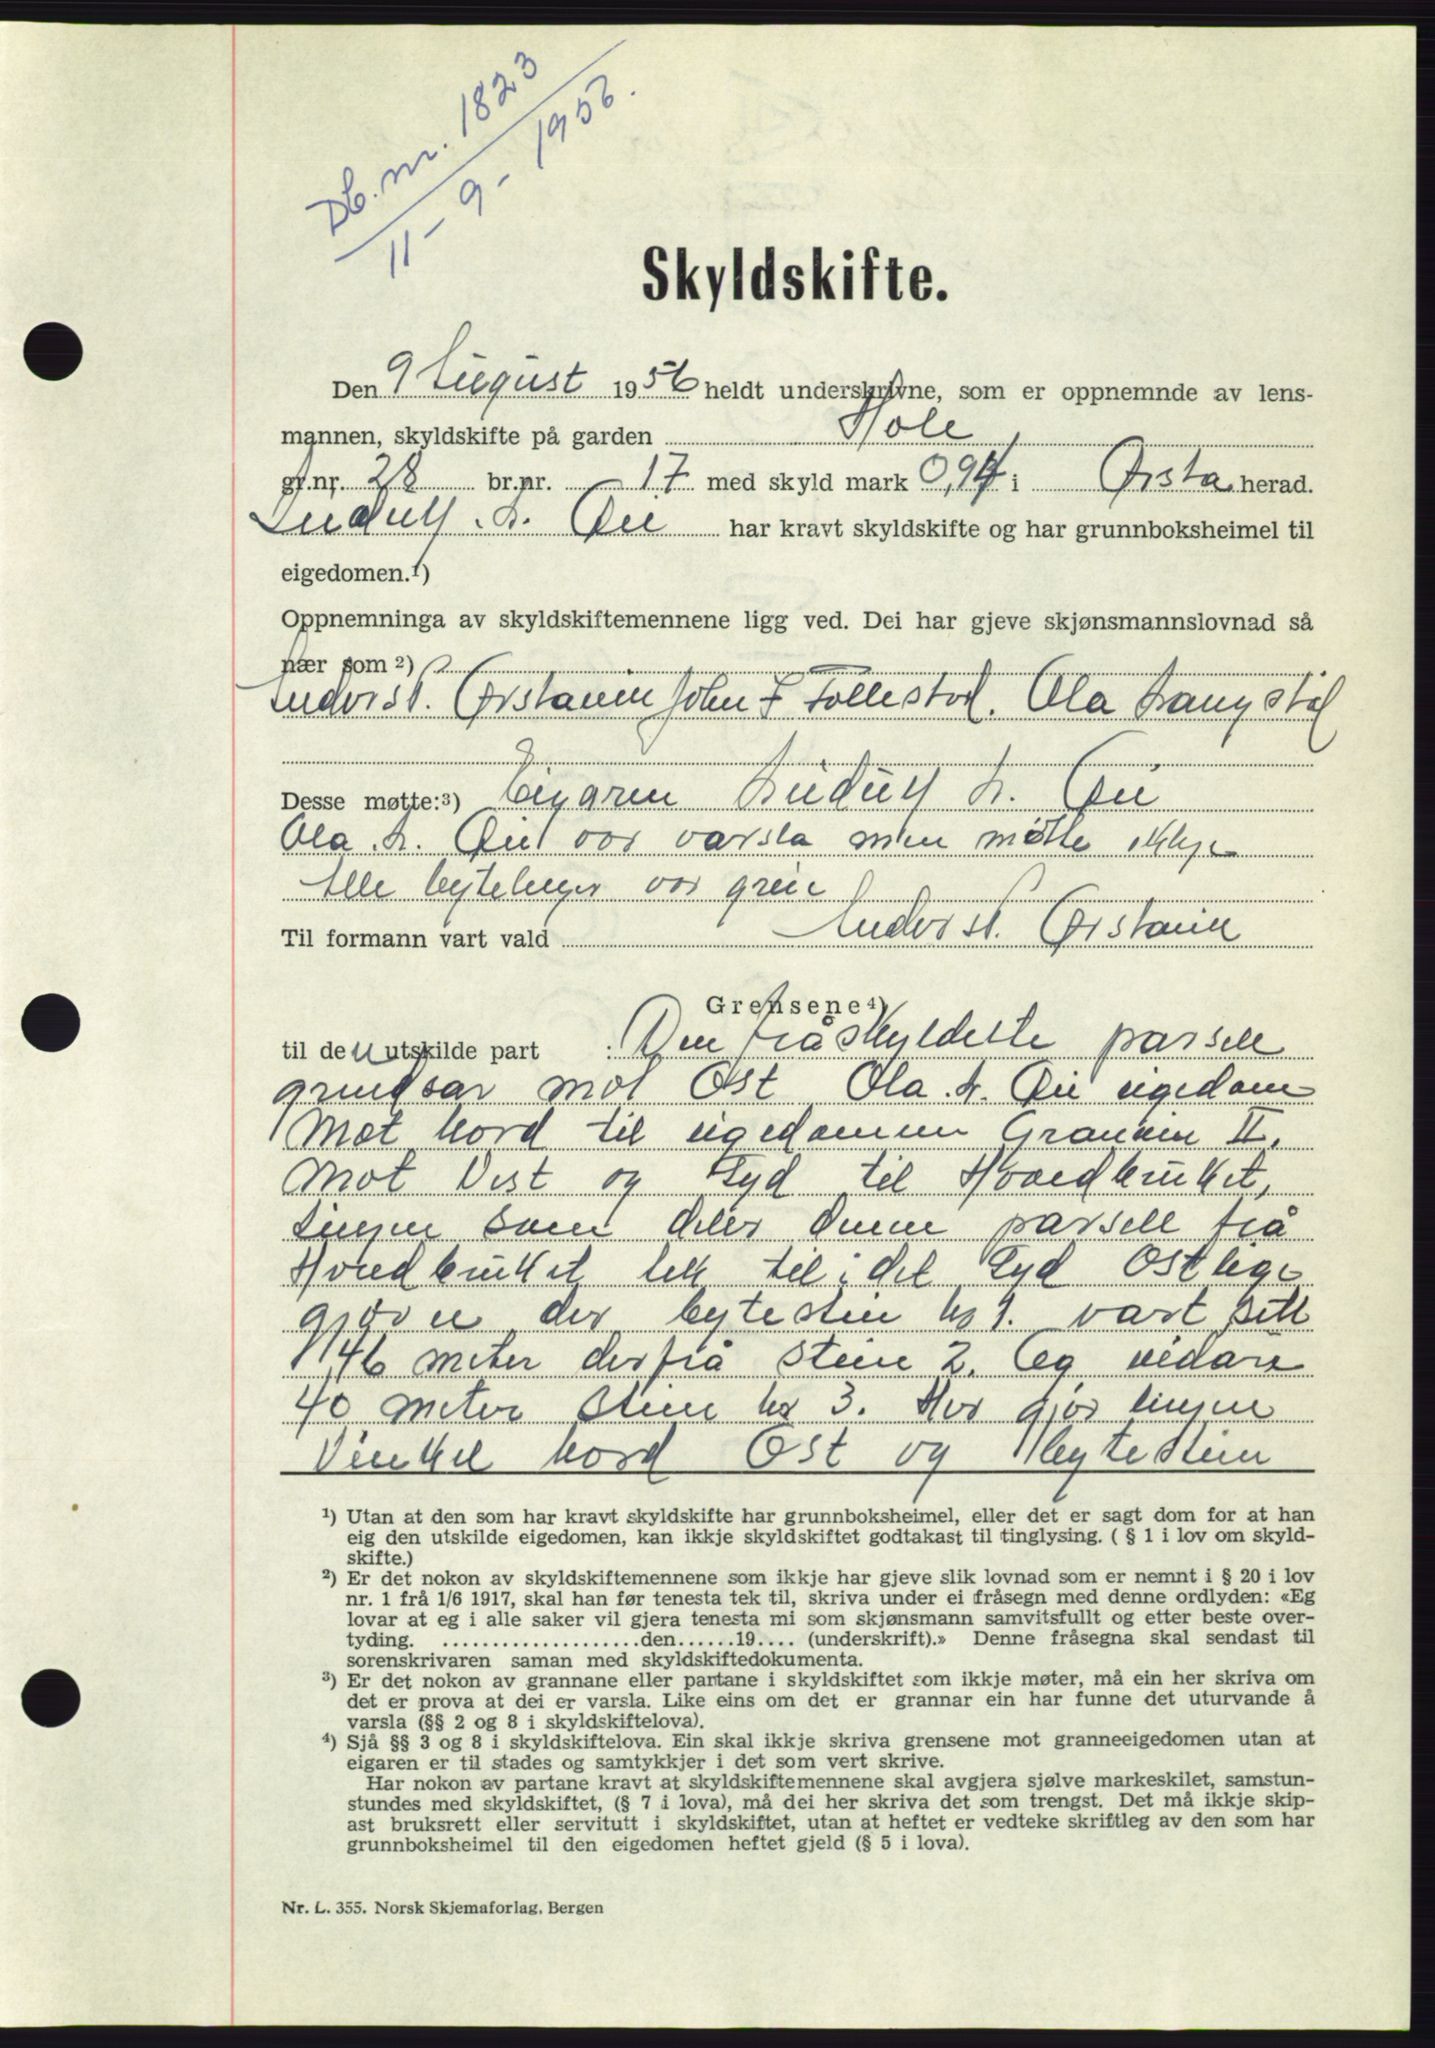 Db. nr. 1823
11-9-1956.
Skyldskifte.
Den 9 August 1956 heldt underskrivne, som er oppnemnde av lens-
mannen, skyldskifte på garden Hole
gr.nr. 28 br.nr. 17 med skyld mark 0,94 i Ørsta herad.
A. Øie har kravt skyldskifte og har grunnboksheimel til
eigedomen.¹)
Oppnemninga av skyldskiftemennene ligg ved. Dei har gjeve skjønsmannslovnad så
nær som ²)
Ørstavik John F Follestad. Ola Langstøl
Desse møtte:³) Eigaren A. Øie
Ola A. Øie var varsla men møtte ikkje
Alle bytelinjer var greie
Til formann vart vald Ørstavik
Grensene⁴)
til den utskilde part : Den fråskyldeste parsell
grensar mot Øst Ola A. Øie eigedom
Mot Nord til eigedommen II.
Mot Vest og Syd til Hovedbruket,
Linjen som deler denne parsell frå
Hovedbruket tek til i det Syd Østlige
der bytestein no 1. vart sett
46 meter derfrå stein 2. Og vidare
40 meter stein no 3. Her gjør linjen
Vinkel Nord Øst og bytestein
¹) Utan at den som har kravt skyldskifte har grunnboksheimel, eller det er sagt dom for at han
eig den utskilde eigedomen, kan ikkje skyldskiftet godtakast til tinglysing. ( § 1 i lov om skyld-
skifte.)
²) Er det nokon av skyldskiftemennene som ikkje har gjeve slik lovnad som er nemnt i § 20 i lov
nr. 1 frå 1/6 1917, skal han før tenesta tek til, skriva under ei fråsegn med denne ordlyden: «Eg
lovar at eg i alle saker vil gjera tenesta mi som skjønsmann samvitsfullt og etter beste over-
tyding. ....................den......19.... (underskrift).» Denne fråsegna skal sendast til
sorenskrivaren saman med skyldskiftedokumenta.
³) Er det nokon av grannane eller partane i skyldskiftet som ikkje møter, må ein her skriva om
det er prova at dei er varsla. Like eins om det er grannar ein har funne det uturvande å
varsla (§§ 2 og 8 i skyldskiftelova).
⁴) Sjå §§ 3 og 8 i skyldskiftelova. Ein skal ikkje skriva grensene mot granneeigedomen utan at
eigaren er til stades og samtykkjer i det som vert skrive.
Har nokon av partane kravt at skyldskiftemennene skal avgjera sjølve markeskilet, samstun-
stundes med skyldskiftet, (§ 7 i lova), må dei her skriva det som trengst. Det må ikkje skip-
ast bruksrett eller servitutt i skyldskiftet, utan at heftet er vedteke skriftleg av den som har
grunnboksheimel til den eigedomen heftet gjeld (§ 5 i lova).
Nr. L. 355. Norsk Skjemaforlag, Bergen